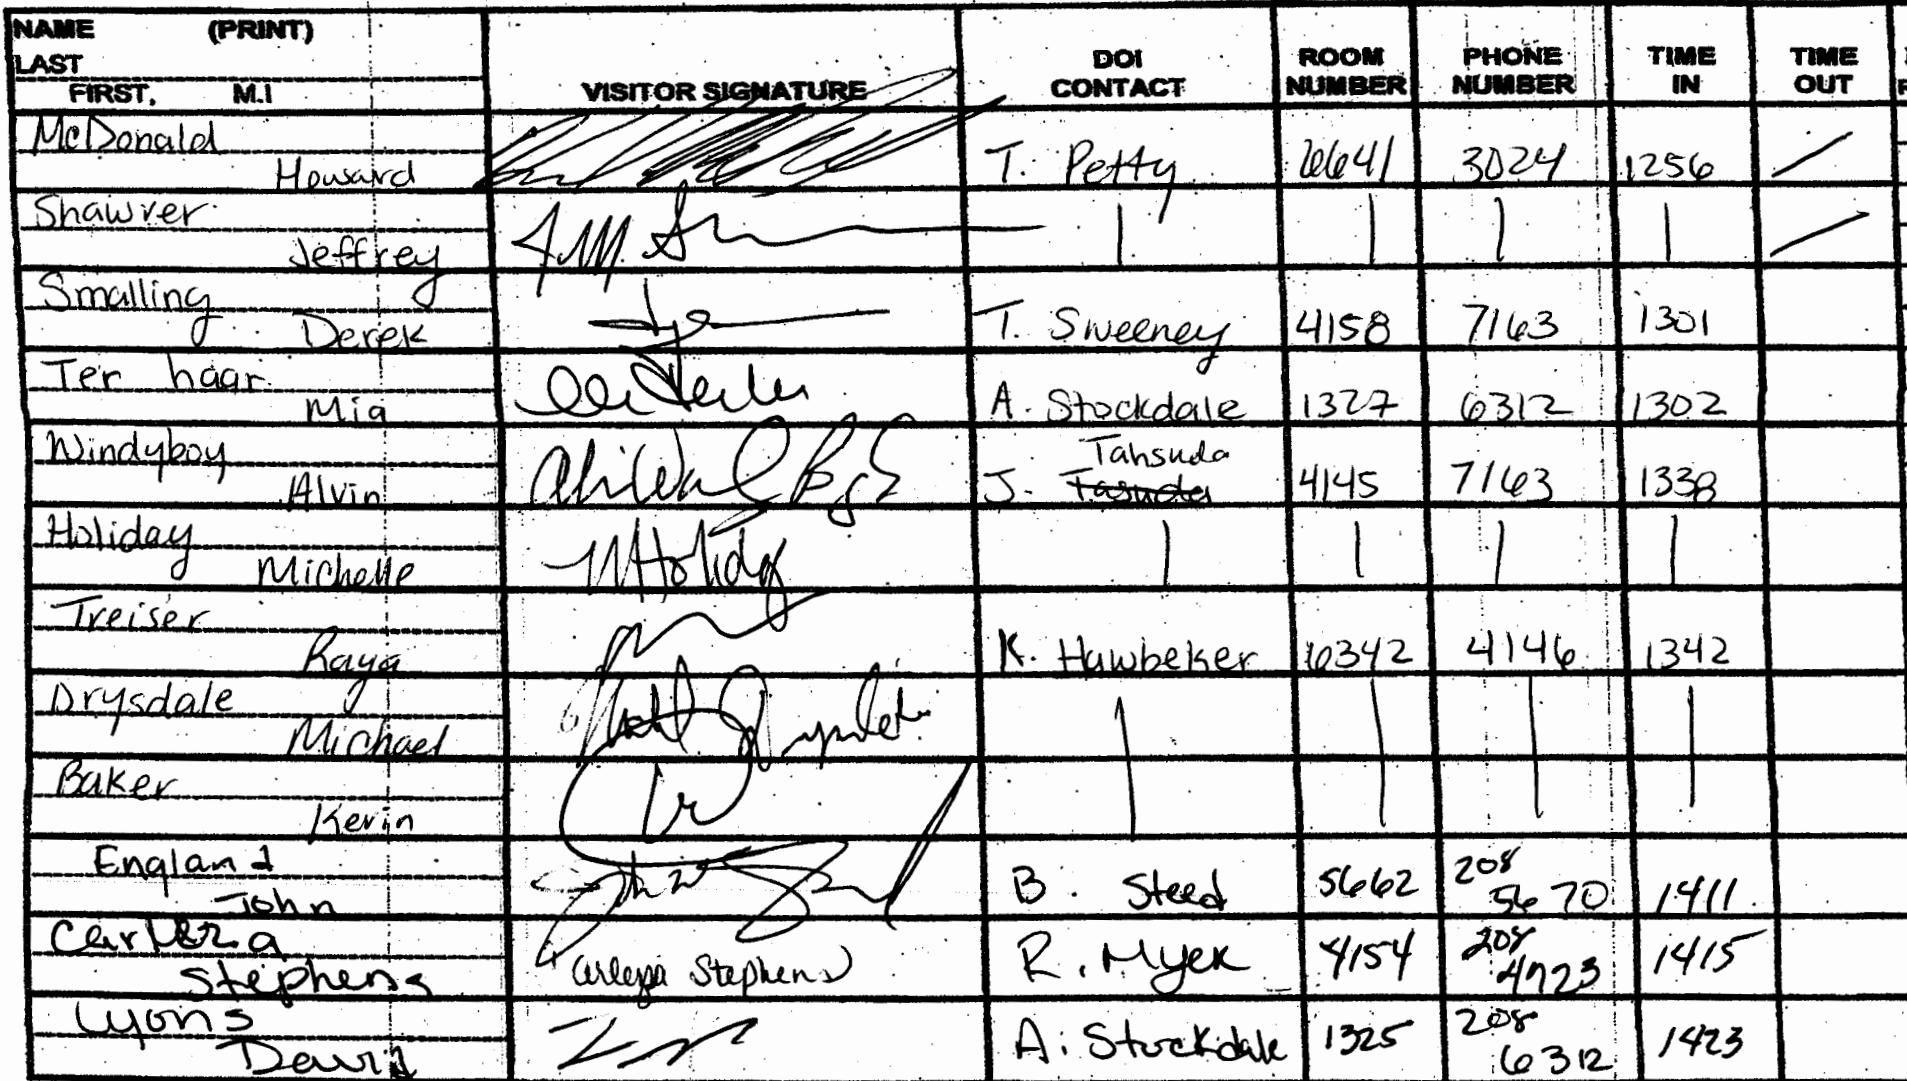 NAME (PRINT)
LAST
FIRST, M.I
VISITOR SIGNATURE
DOI CONTACT
ROOM NUMBER
PHONE NUMBER
TIME IN
TIME OUT
McDonald
Howard T. Petty 6641 3024 1256 /
Shawver
Jeffrey | | | | /
Smalling
Derek T. Sweeney 4158 7163 1301
Ter haar
Mia A. Stockdale 1327 6312 1302
Windyboy Tahsuda
Alvin J. Tasuda 4145 7163 1338
Holiday
Michelle MHoliday | | | |
Treiser
Raya K. Hawbeker 6342 4146 1342
Drysdale
Michael | | | |
Baker
Kevin
England 208
John B. Steed 5662 5670 1411
208
Stephens Stephens R. Myek 4154 4723 1415
Lyons 208
David A. Stockdale 1325 6312 1423